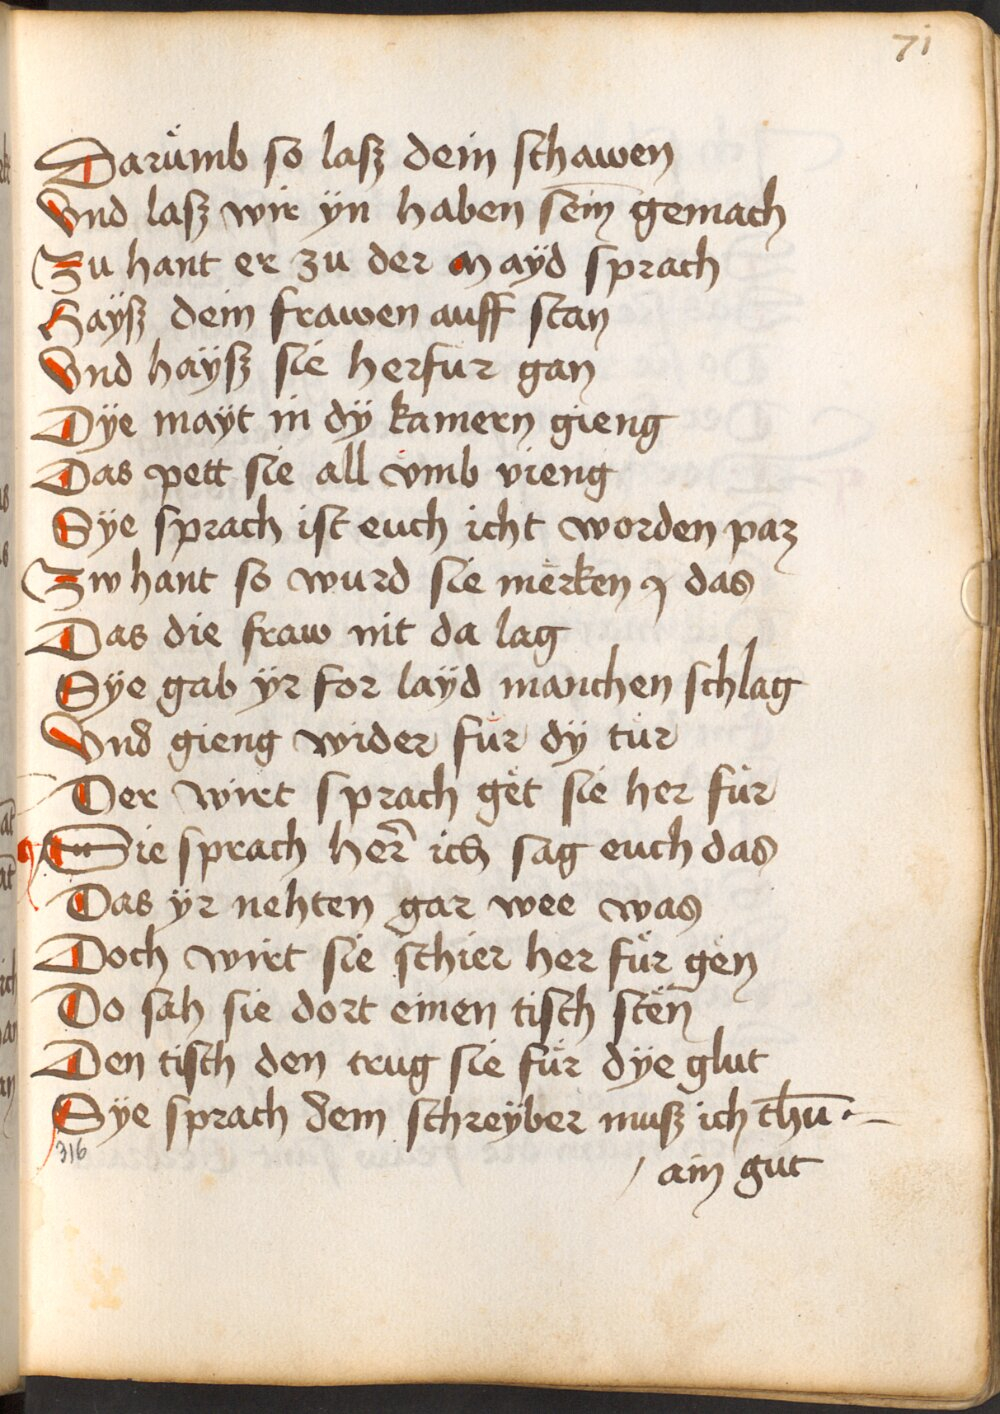 71
Darümb so lasz dein schawen
Vnd lasz wir ÿn haben sein̄ gemach
Zu hant er zu der maÿd sprach
Haÿsz dein frawen auff stan
Vnd haÿsz sie herfür gan
Dÿe maÿt in dÿ kamern gieng
Das pett sie all vmb vieng
Sÿe sprach ist euch icht worden paz
Zw hant so wurd sie merken das
Das die fraw nit da lag
Sÿe gab ÿr for laÿd manchen schlag
Vnd gieng wider für dÿ tür
Der wirt sprach get sie her für
Sie sprach her̄ ich sag euch das
Das ÿr nehten gar wee was
Doch wirt sie schier her für gen
Do sah sie dort einen tisch sten̄
Den tisch den trug sie für dÿe glut
Sÿe sprach dem schreÿber musz ich thū
316
ain gut